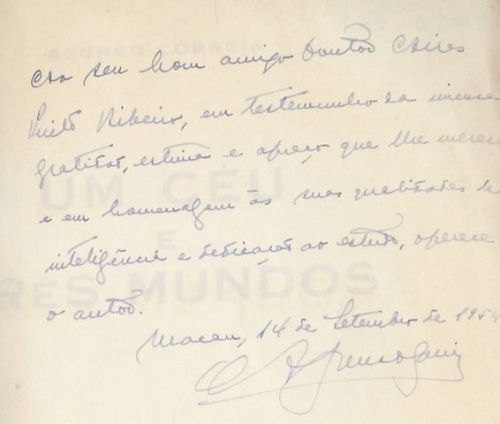 Ao seu bom amigo Doutor
Ribeiro, em testemunho da imensa
gratidão, estima e apreço que lhe merece
e em homenagem às suas qualidades de
inteligência e dedicação ao estudo, oferece
o autor.
Macau, 14 de Setembro de 1954
AFONSO CORREIA
UM CÉU
E
RES MUNDOS